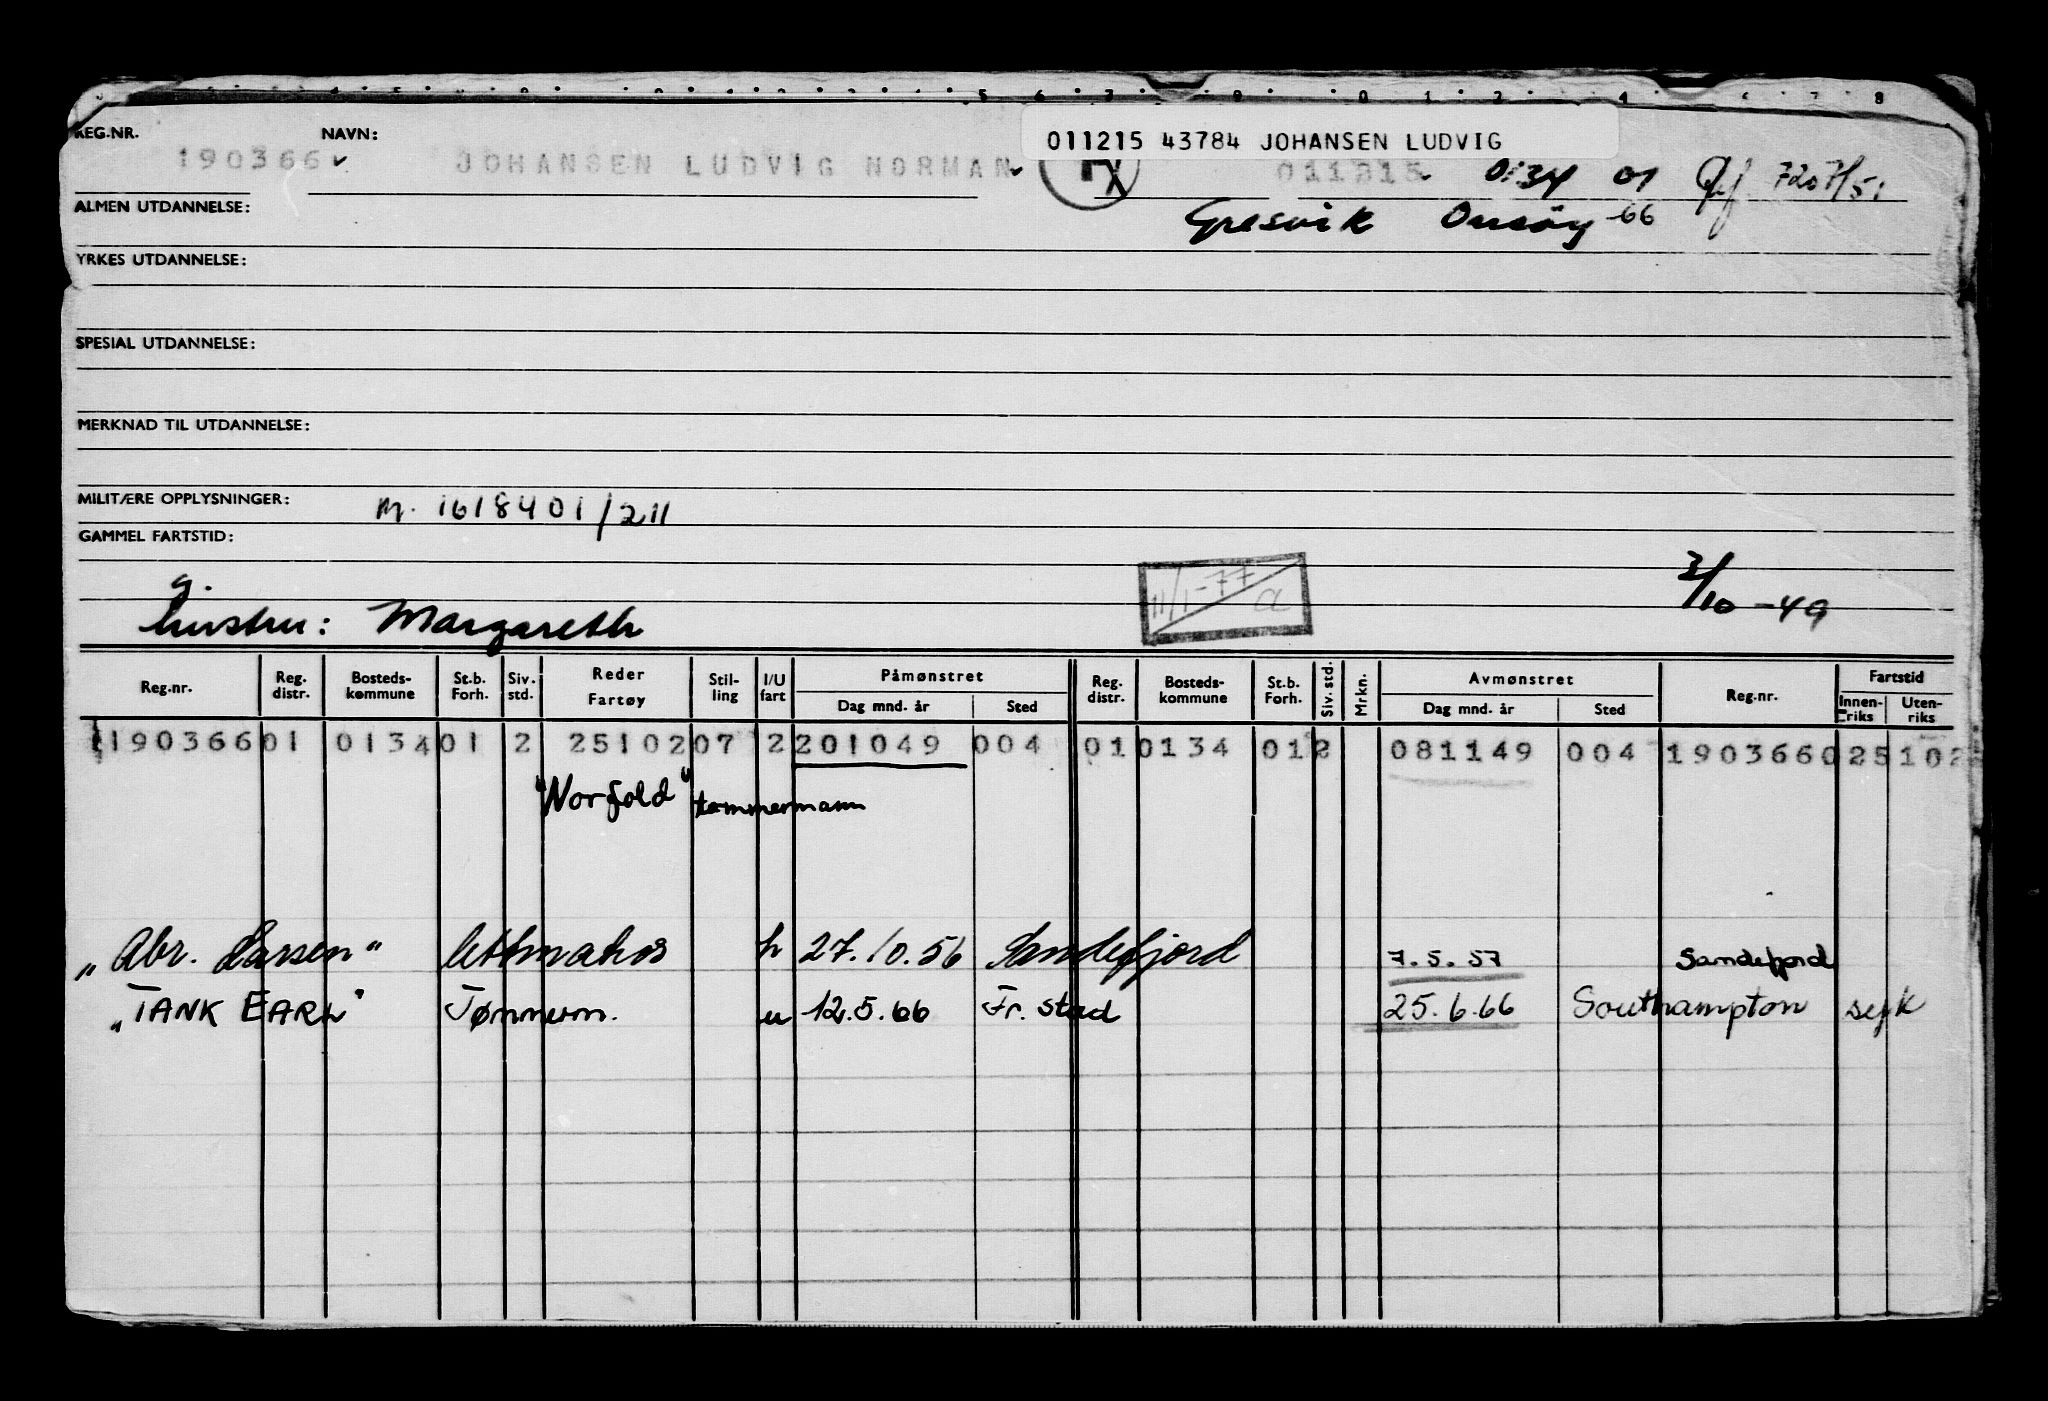 011215 43784 JOHANSEN LUDVIG
REG.NR. NAVN:
190366 JOHANSEN LUDVIG NORMAN 011215 0134 01
ALMEN UTDANNELSE: Gresvik Onsöy -66
YRKES UTDANNELSE:
SPESIAL UTDANNELSE:
MERKNAD TIL UTDANNELSE:
MILITÆRE OPPLYSNINGER: M. 1618401/211
GAMMEL FARTSTID:
g. 11/1-77 a 3/10-49
hustru: Margareth
Reg.nr. Reg. distr. Bosteds-kommune St.b. Forh. Siv. std. Reder Fartøy Stil-ling I/U fart Påmønstret Dag mnd. år Sted Reg. distr. Bosteds-kommune St.b. Forh. Siv. std. Mrkn. Avmønstret Dag mnd. år Sted Reg.nr. Fartstid Innen-riks Uten-riks
190366 01 0134 01 2 25102 07 2 201049 004 01 0134 01 2 081149 004 190366 025 102
"Norfold" tømmermann
"Abr. Larsen" h 27.10.56 Sandefjord 7.5.57 Sandefjord
"TANK EARL" Tømmerm. u 12.5.66 Fr.stad 25.6.66 Southampton syk